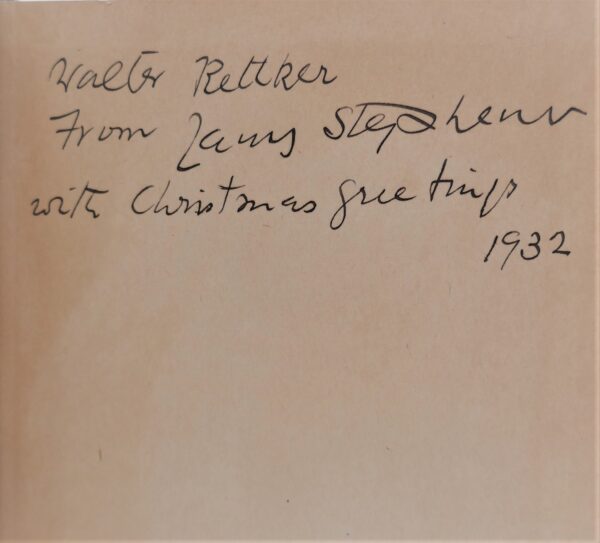 Walter Rettker
From James Stephens
with Christmas greetings
1932